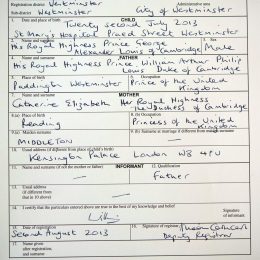 Registration district Westminster Administrative area
Sub-district Westminster City of Westminster
1. Date and place of birth CHILD
Twenty second July 2013
St Mary's Hospital Praed Street Westminster
2. Name and surname 3. Sex
His Royal Highness Prince George
Alexander Louis of Cambridge Male
4. Name and surname FATHER
His Royal Highness Prince William Arthur Philip
Louis Duke of Cambridge
5. Place of birth 6. Occupation
Paddington Westminster Prince of the United
Kingdom
7. Name and surname MOTHER
Catherine Elizabeth Her Royal Highness
The Duchess of Cambridge
8.(a) Place of birth 8.(b) Occupation
Reading Princess of the United
Kingdom
9.(a) Maiden surname 9.(b) Surname at marriage if different from maiden surname
MIDDLETON
10. Usual address (if different from place of child's birth)
Kensington Palace London W8 4PU
11. Name and surname (if not the mother or father) INFORMANT 12. Qualification
Father
13. Usual address
(if different from
that in 10 above)
14. I certify that the particulars entered above are true to the best of my knowledge and belief
Signature
of informant
15. Date of registration 16. Signature of registrar
Second August 2013
Deputy Registrar
17. Name given
after registration,
and surname